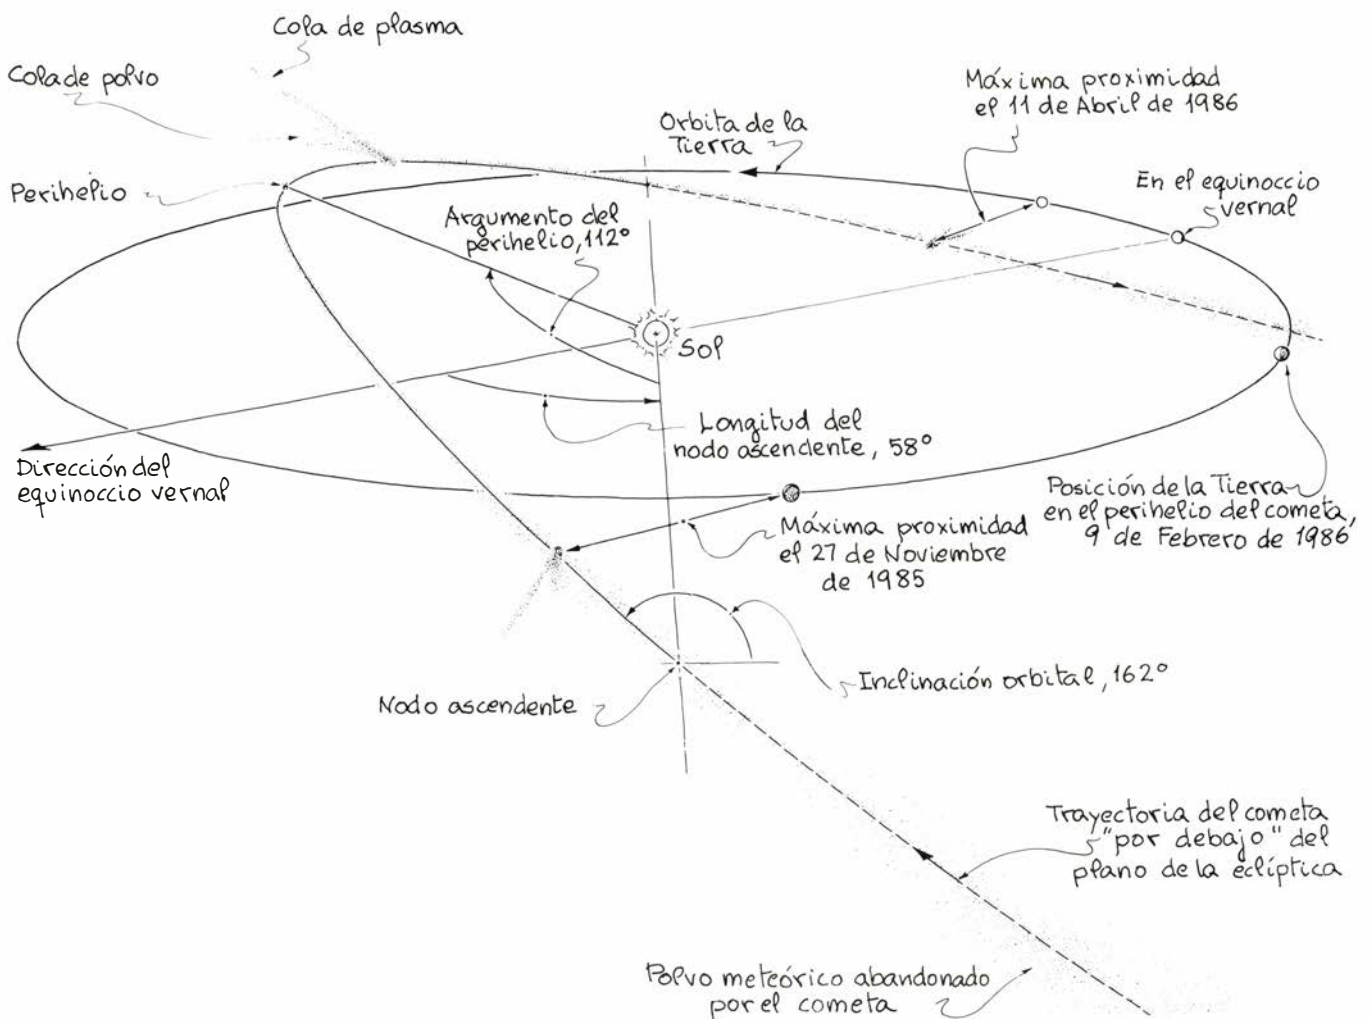 Cola de plasma
Cola de polvo
Máxima proximidad
el 11 de Abril de 1986
Orbita de la
Tierra
Perihelio
En el equinoccio
vernal
Argumento del
perihelio, 112°
Sol
Longitud del
nodo ascendente, 58°
Dirección del
equinoccio vernal
Posición de la Tierra
en el perihelio del cometa,
9 de Febrero de 1986
Máxima proximidad
el 27 de Noviembre
de 1985
Inclinación orbital, 162°
Nodo ascendente
Trayectoria del cometa
"por debajo" del
plano de la eclíptica
Polvo meteórico abandonado
por el cometa